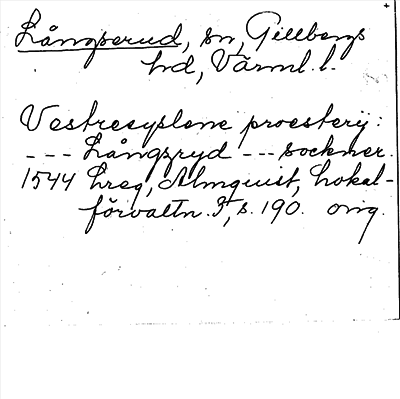 Långserud, sn, Gillbergs
hd, Värml. l.
Vestresyslene proesterij:
--- Långzryd --- sockner.
1544 hreg, Almquist, Lokal-
förvaltn. I, s. 190. orig.